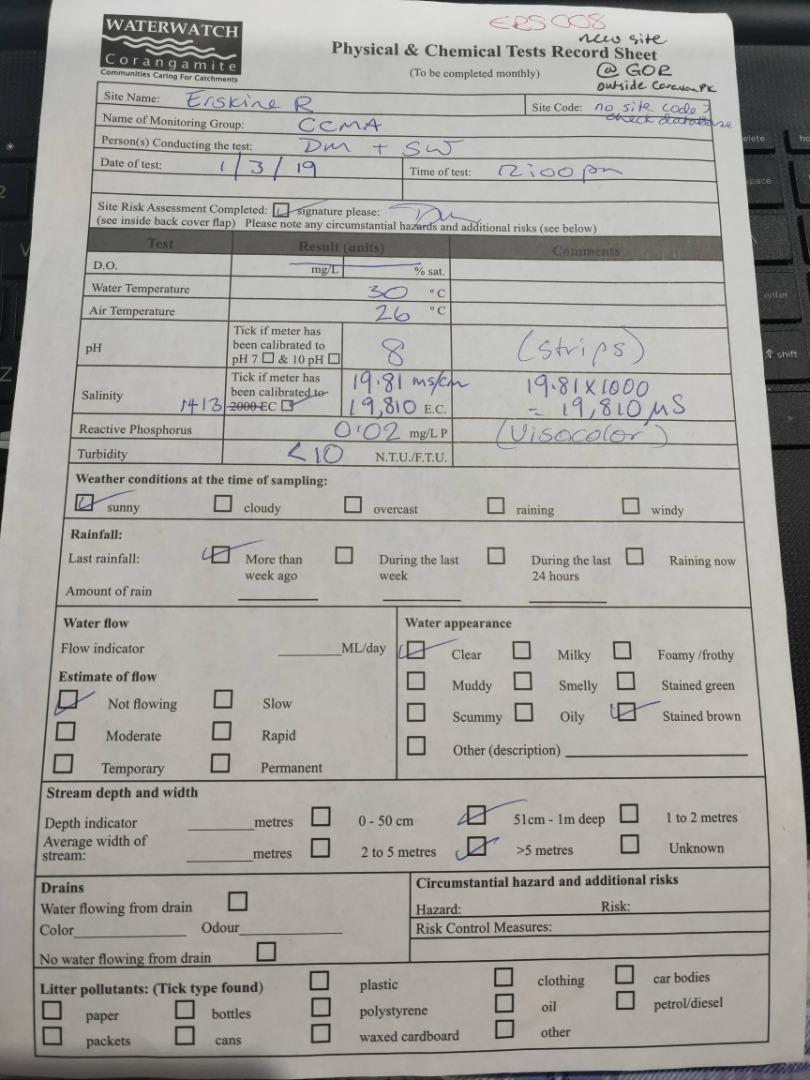 WATERWATCH
Corangamite
Communities Caring For Catchments
ERS008
new site
@ GOR
outside Caravan PK
Physical & Chemical Tests Record Sheet
(To be completed monthly)
Site Name: Erskine R
Site Code: no site code? check database
Name of Monitoring Group: CCMA
Person(s) Conducting the test: DM + SW
Date of test: 1/3/19
Time of test: 12:00pm
Site Risk Assessment Completed: signature please:
(see inside back cover flap) Please note any circumstantial hazards and additional risks (see below)
Test Result (units) Comments
D.O. mg/L % sat.
Water Temperature 30 °C
Air Temperature 26 °C
pH Tick if meter has been calibrated to pH 7 & 10 pH 8 (strips)
Salinity 1413 Tick if meter has been calibrated to 2000 EC 19.81 ms/cm 19,810 E.C. 19.81 x 1000 = 19,810 µS
Reactive Phosphorus 0.02 mg/L P (Visocolor)
Turbidity <10 N.T.U./F.T.U.
Weather conditions at the time of sampling:
sunny cloudy overcast raining windy
Rainfall:
Last rainfall: More than week ago During the last week During the last 24 hours Raining now
Amount of rain
Water flow
Flow indicator ML/day
Estimate of flow
Not flowing Slow
Moderate Rapid
Temporary Permanent
Water appearance
Clear Milky Foamy /frothy
Muddy Smelly Stained green
Scummy Oily Stained brown
Other (description)
Stream depth and width
Depth indicator metres 0 - 50 cm 51cm - 1m deep 1 to 2 metres
Average width of stream: metres 2 to 5 metres >5 metres Unknown
Drains
Water flowing from drain
Color Odour
No water flowing from drain
Circumstantial hazard and additional risks
Hazard: Risk:
Risk Control Measures:
Litter pollutants: (Tick type found) plastic clothing car bodies
paper bottles polystyrene oil petrol/diesel
packets cans waxed cardboard other